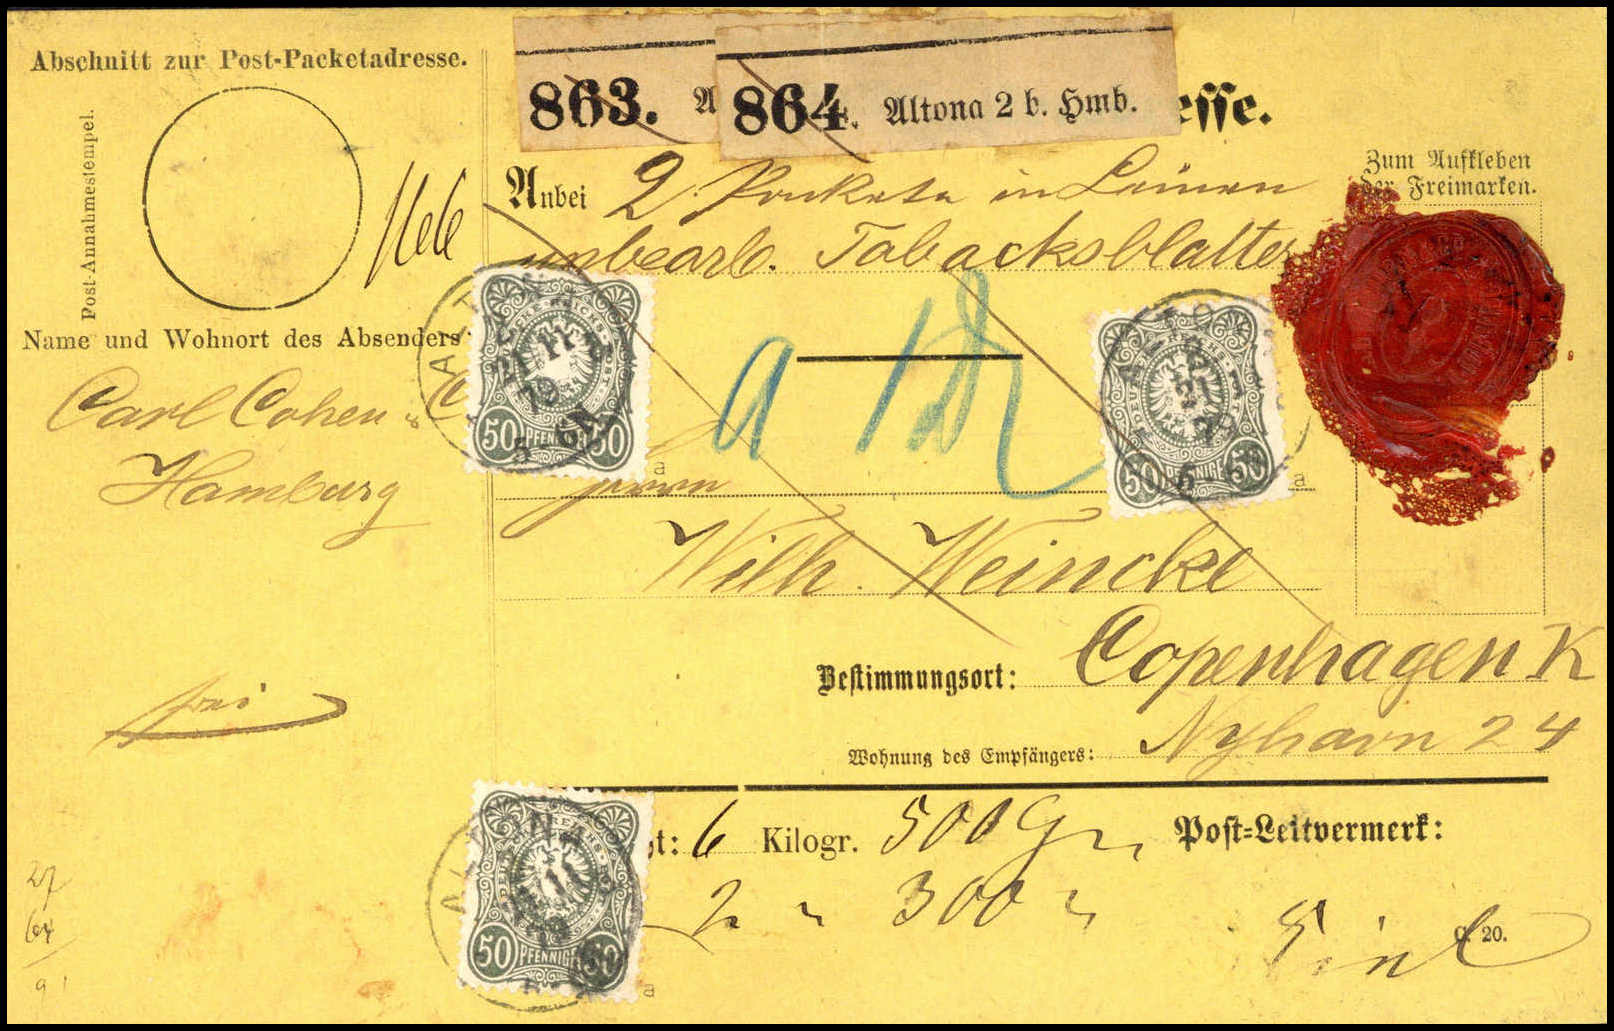 Abschnitt zur Post-Packetadresse.
Post-Annahmestempel.
Name und Wohnort des Absenders
Carl Cohen
Hamburg
frei
27
64
91
863. A
864. Altona 2 b. Hmb.
esse.
Zum Aufkleben
der Freimarken.
Anbei 2 Packete in Leinen
unbearb. Tabacksblatter
ALTONA
50 PFENNIG 50
a
50 PFENNIG 50
a
Herrn
Wilh. Weincke
Bestimmungsort: Copenhagen K
Wohnung des Empfängers: Nyhavn 24
t: 6 Kilogr. 500 Gr
Post-Leitvermerk:
2 " 300 "
ALTONA
50 PFENNIG 50
a
C. 20.